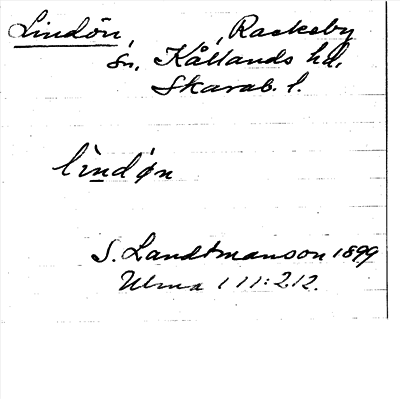 Lindön, , Rackeby
sn, Kållands hd,
Skarab. l.
lìndǿn
S. Landtmanson 1899
Ulma 111:212.